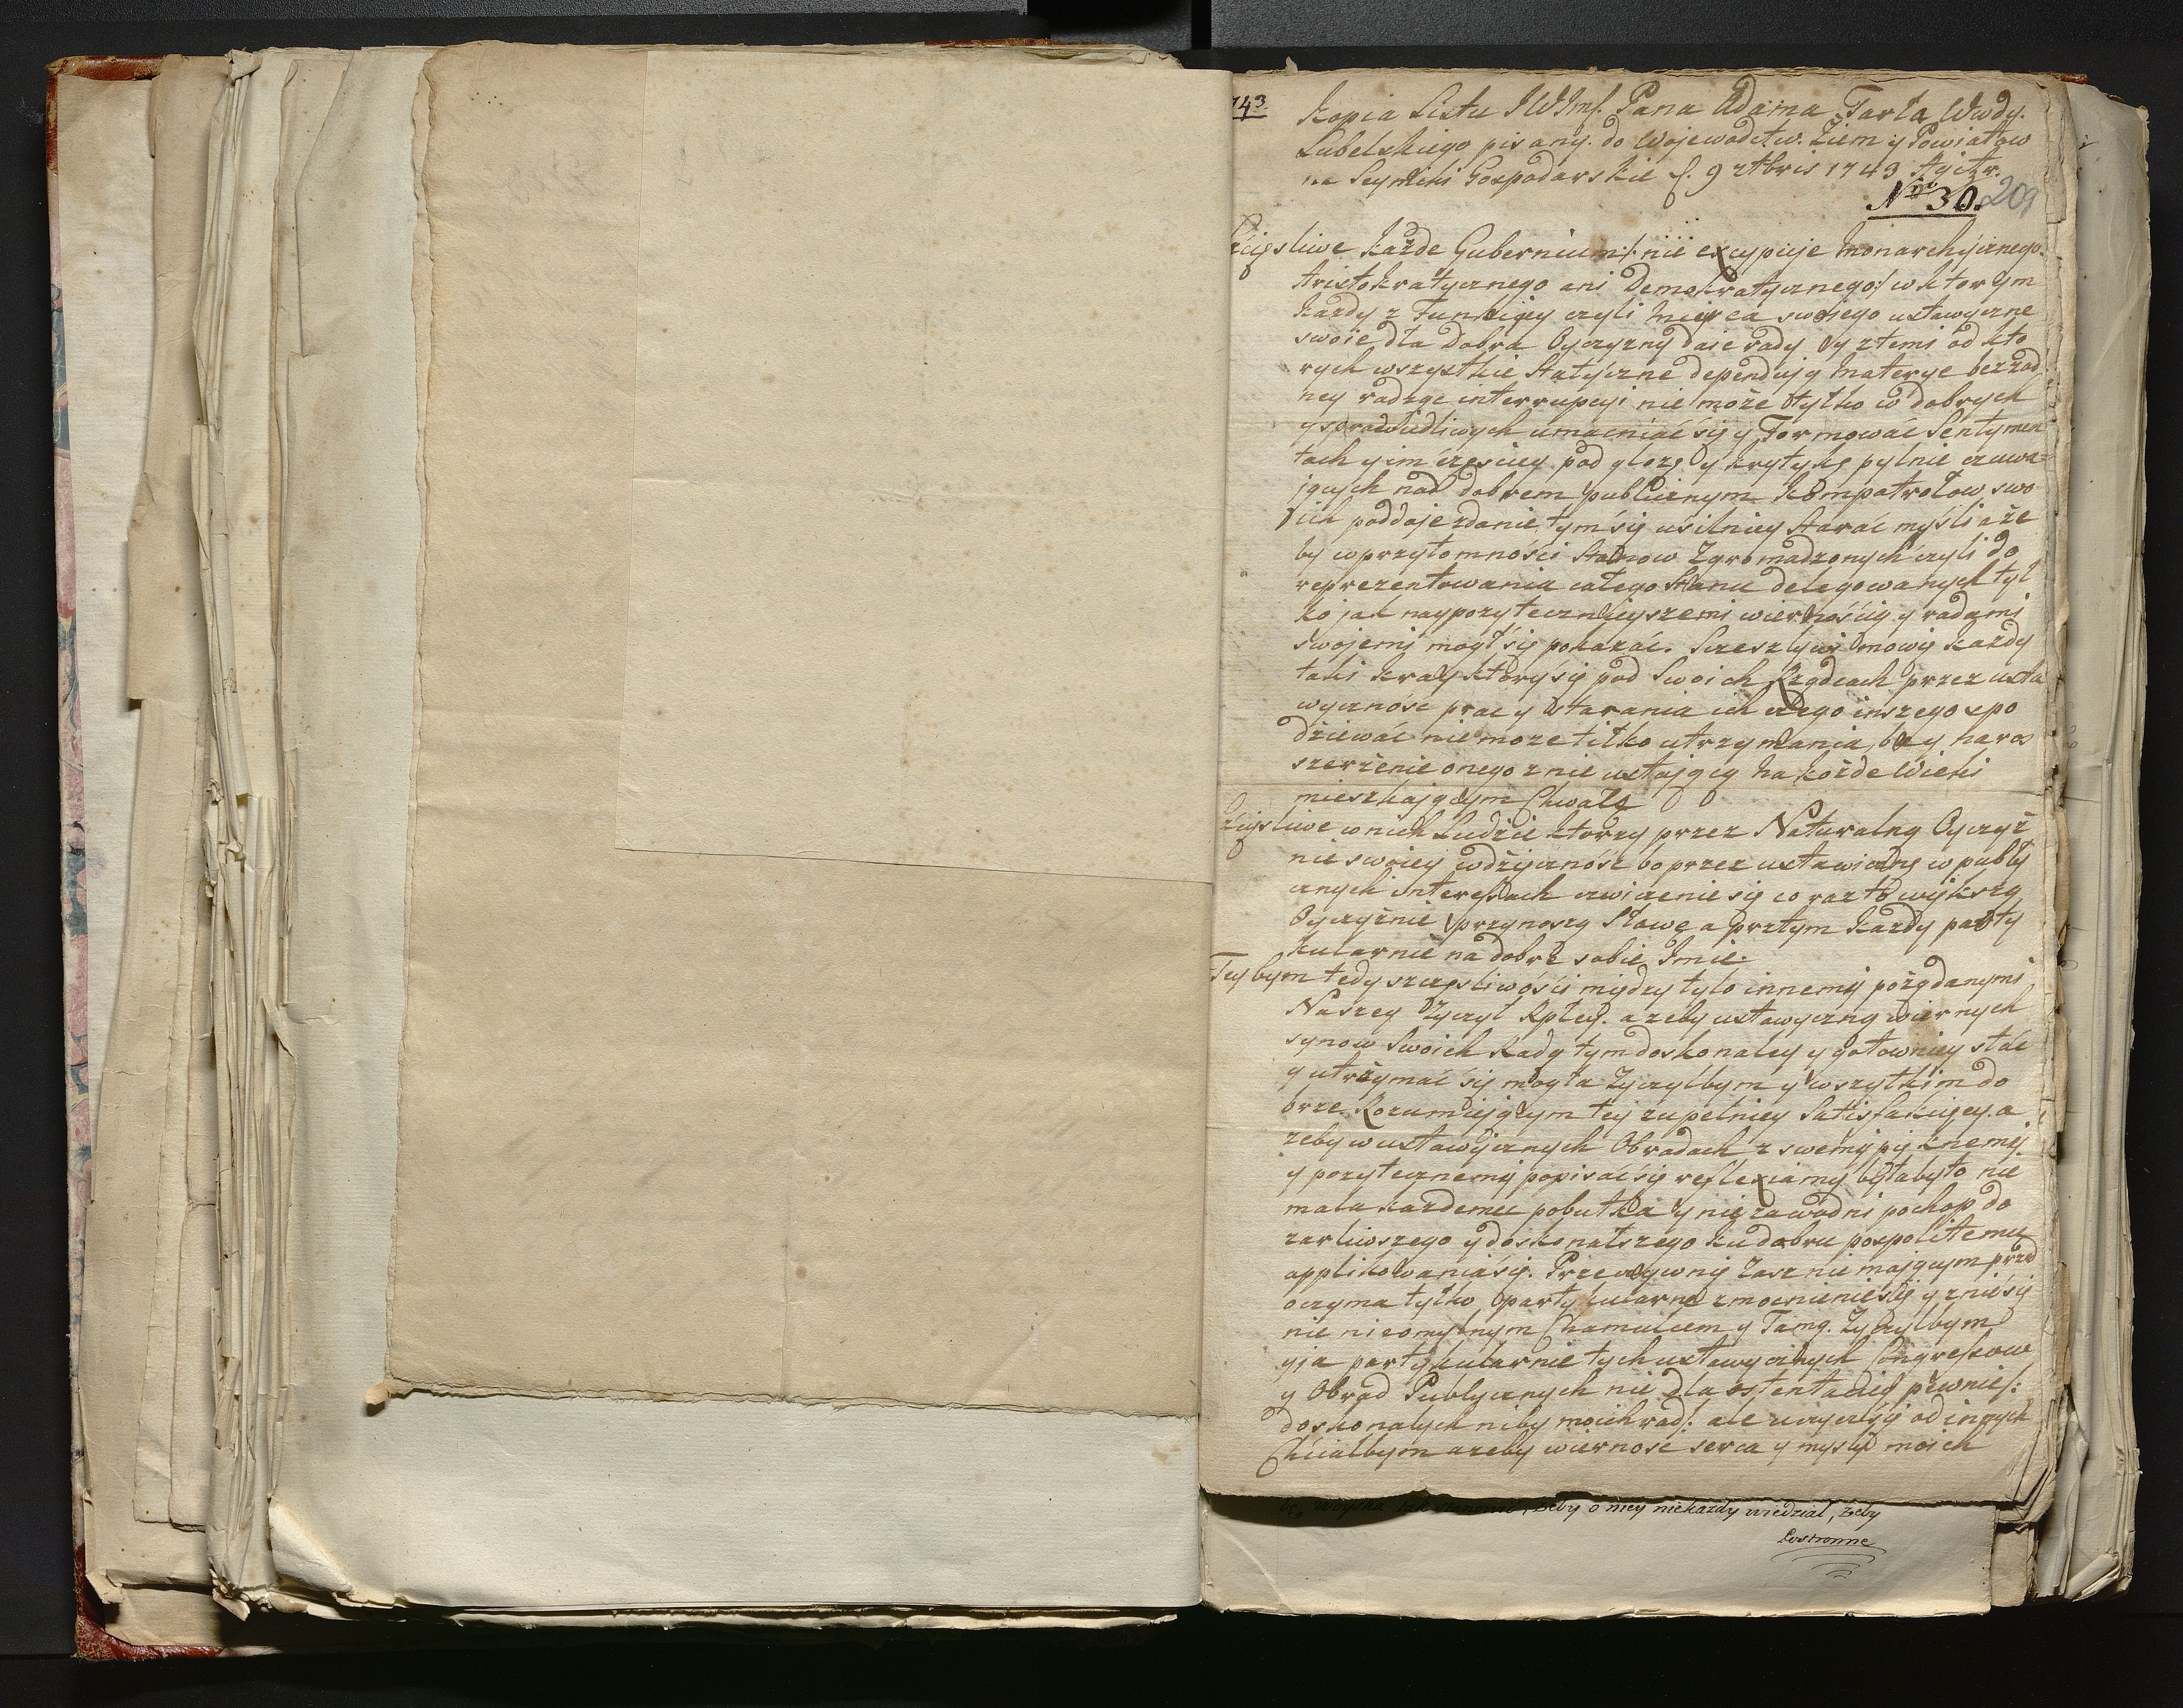 743.
Kopia Listu JWJmś. Pana Adama Tarła Wwdy.
Lubelskiego pisany. do Wojewodztw. Ziem y Powiatow
na Seymiki Gospodarskie
1743
Nro 30. 209
sliwe każde Gubernium /: nie excypuje Monarchycznego.
Aristokratycznego ani Demokratycznego :/ w ktorym
każdy z Funkcyey czyli mieysca swojego ustawyczne
swoie dla dobra Oyczyzny daie rady y z temi od kto
rych wszystkie Statyczne dependują materye bez żad
ney radząc interrupcyi nie może tylko w dobrych
y sprawiedliwych umacniać się y Formować Sentymen
tach y im częsciey pod glozę y krytykę pylnie czuwa=
jących nad dobrem publicznym kompatrotow swo
ich poddaje zdanie tym się usilniey starać myśli aże
by w przytomności Stanow Zgromadzonych czyli do
reprezentowania całego Stanu delegowanych tyl
ko jak naypozyteczneyszemi wiernością y radami
swojemi mogł się pokazać. Szczeszlywi mowię każdy
taki kray ktory się pod Swoich Rządcach przez usta
wyczność prac y starania ich czego inszego spo
dziewać nie moze tilko utrzymania, bą y na ros
szerżenie onego z nie ustającą na kożde Wieki
mieszkającym Chwałą
sliwe w nich Ludzie ktorzy przez Naturalną Oyczyź
nie swoiey wdzięczność bo przez ustawiczne w publi
cznych interessach cwiczenie się co raz to większą
Oyczyźnie przynoszą Sławę a prztym każdy party
kularnie na dobre sobie Jmie.
Tey bym tedy szczęsliwości między tylo innemi pożądanymi
Naszey życzył Rptey. azeby ustawyczną wiernych
synow Swoich Radą tym doskonaley y gotowniey stać
y utrzymać się mogła życzyłbym y wszytkim do
brze Rozumiejącym tej zupełney Satisfakcyey. a
zeby w ustawycznych Obradach z swemi pięknemi
y pozytecznemi popisać się reflexiamy byłaby to nie
mała każdemu pobutka y nie zawodni pochop do
zarliwszego y doskonalszego ku dobru pospolitemu
applikowania się. Przeciwnie Zasz nie mającym przed
oczyma tylko partykularne zmocnienie się y
nie nieomylnym Chamulcem y Tamą. Życzyłbym
y ja partykularnie tych ustawycznych Congressow
y Obrad Publycznych nie dla ostentaciey pewnie /:
doskonalych niby moich rad :/ ale uczyć się od innych
Chciałbym azeby wiernosc serca y mysli moich
żeby o niey niekażdy wiedział, żeby
Postronne